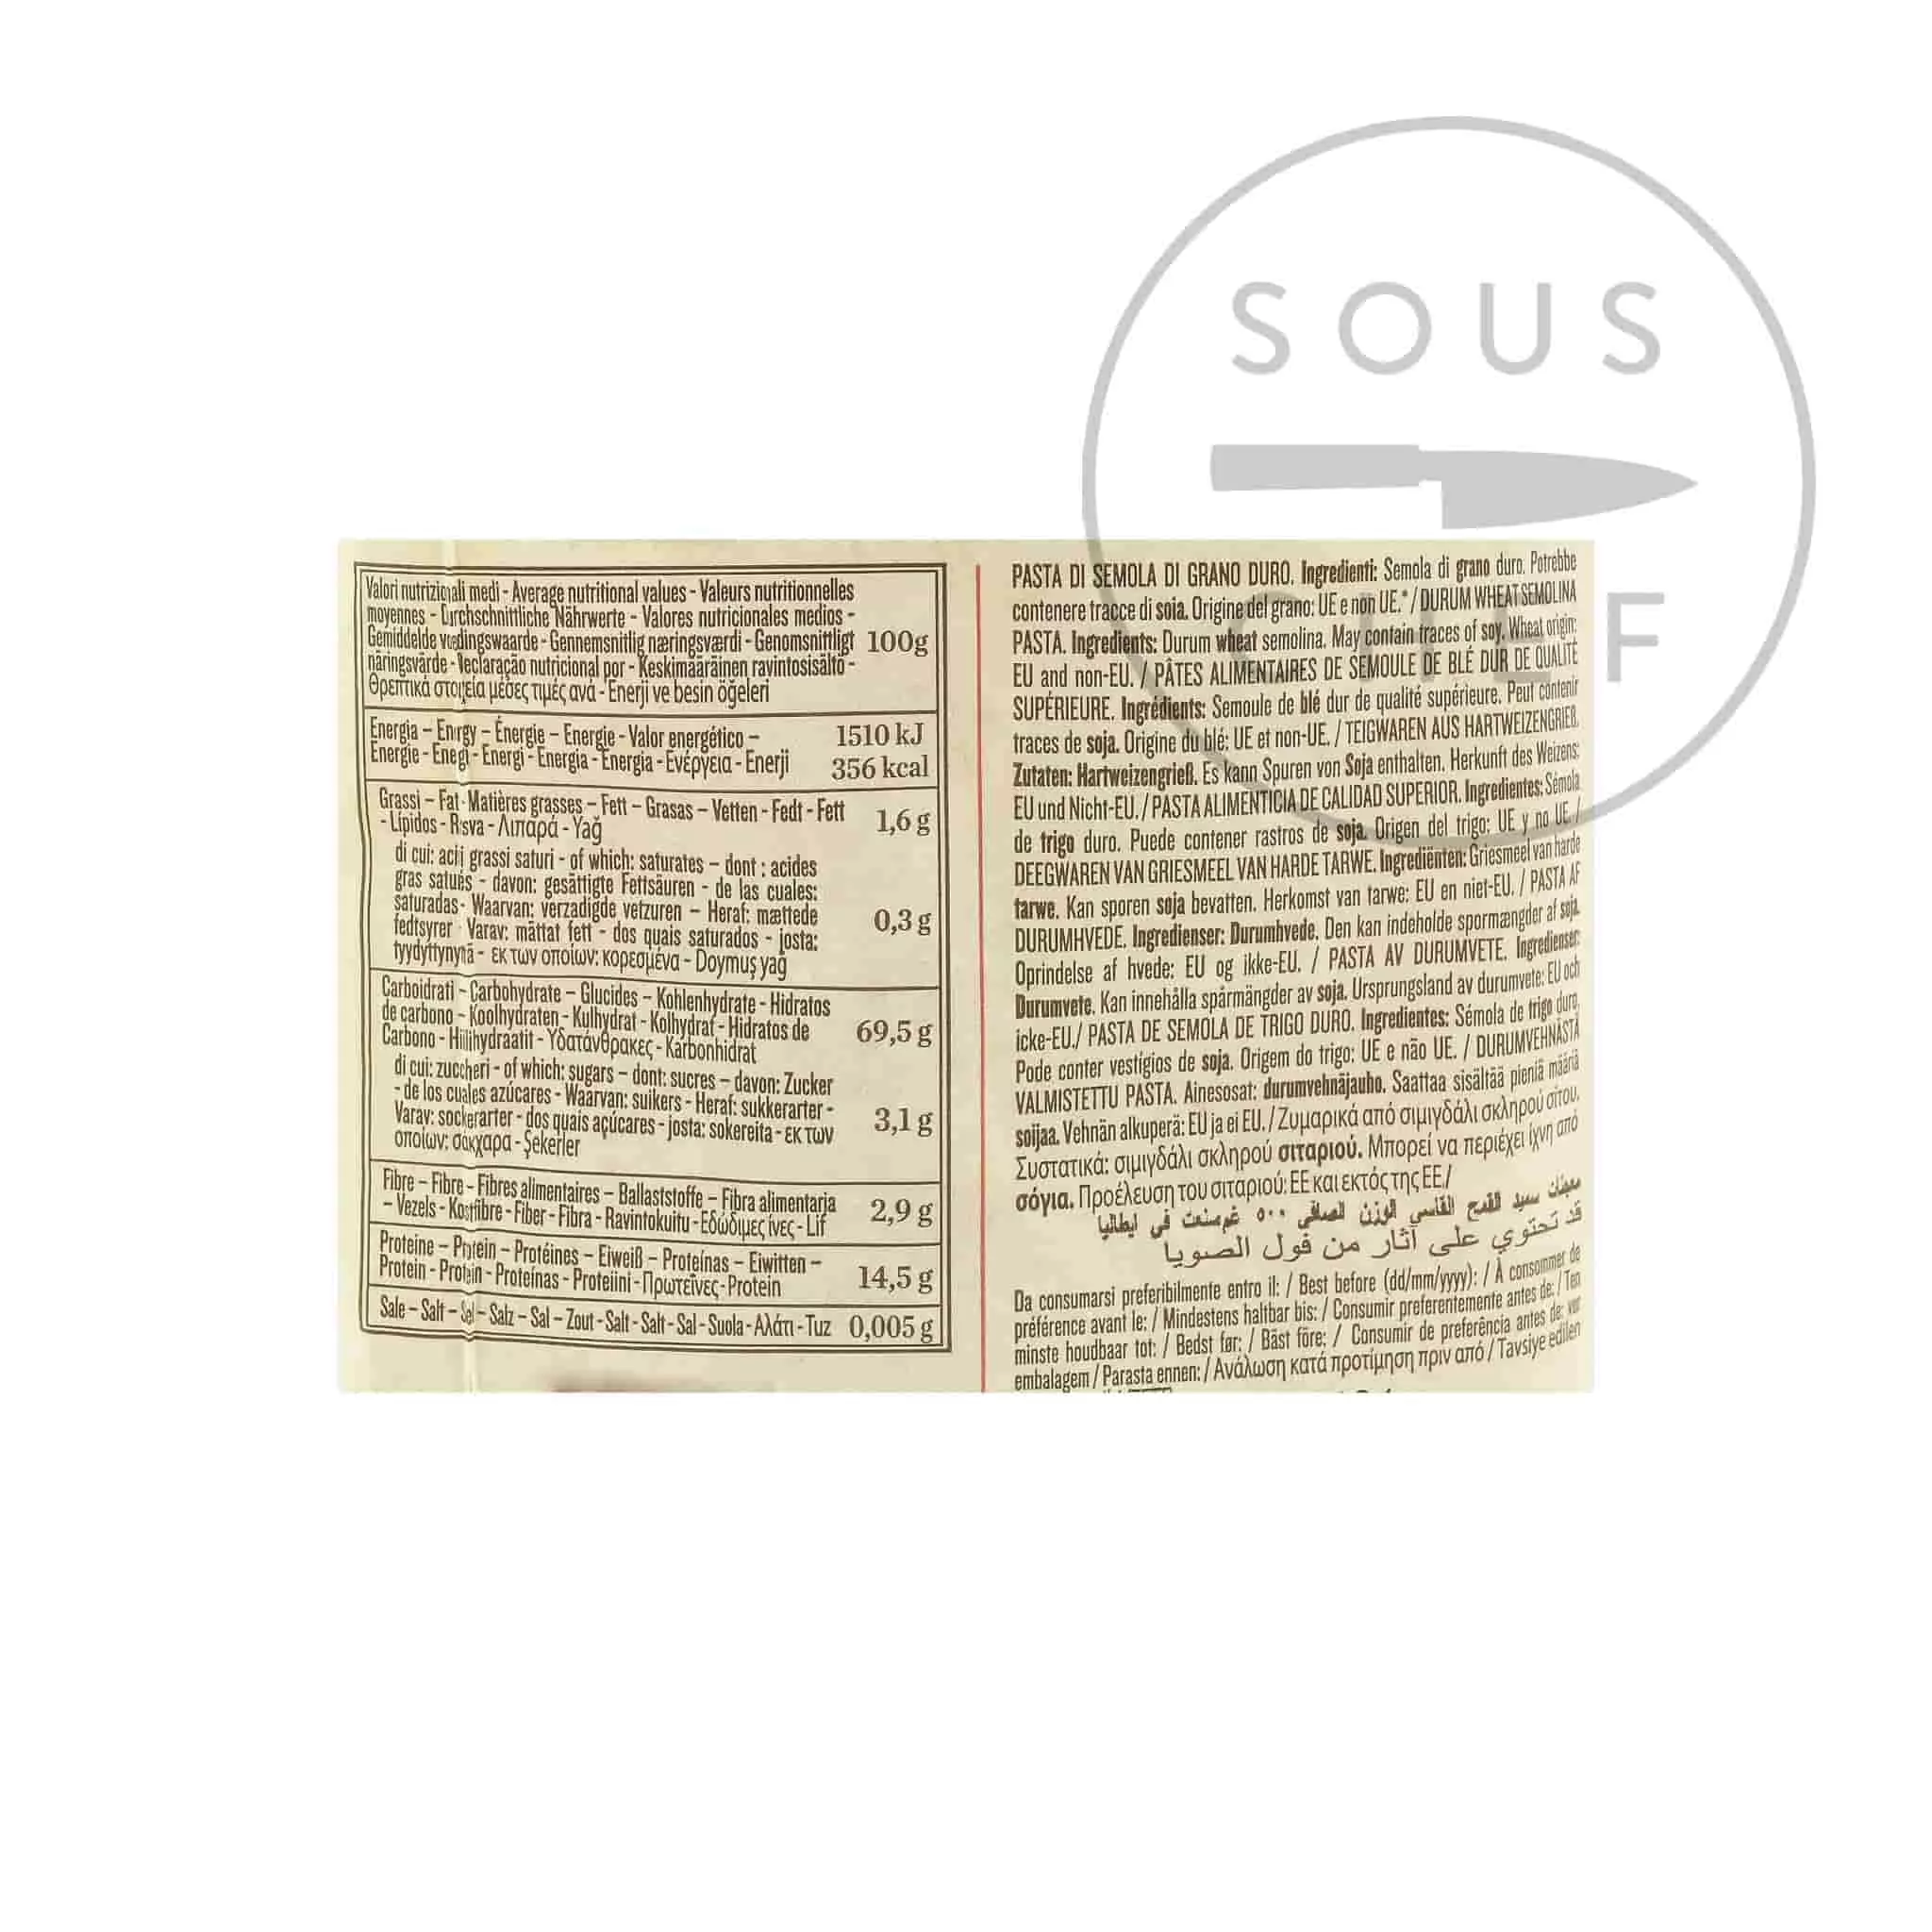 SOUS
CHEF
Valori nutrizionali medi - Average nutritional values - Valeurs nutritionnelles
moyennes - Durchschnittliche Nährwerte - Valores nutricionales medios -
Gemiddelde voedingswaarde - Gennemsnitlig næringsværdi - Genomsnittligt
näringsvärde - Declaração nutricional por - Keskimääräinen ravintosisältö -
Θρεπτικά στοιχεία μέσες τιμές ανά - Enerji ve besin öğeleri
100g
Energia – Energy – Énergie – Energie - Valor energético –
Energie - Energi - Energi - Energia - Energia - Ενέργεια - Enerji
1510 kJ
356 kcal
Grassi – Fat - Matières grasses – Fett – Grasas – Vetten - Fedt - Fett
- Lípidos - Rasva - Λιπαρά - Yağ
1,6 g
di cui: acidi grassi saturi - of which: saturates – dont : acides
gras saturés - davon: gesättigte Fettsäuren - de las cuales:
saturadas - Waarvan: verzadigde vetzuren – Heraf: mættede
fedtsyrer - Varav: mättat fett - dos quais saturados - josta:
tyydyttynyttä - εκ των οποίων: κορεσμένα - Doymuş yağ
0,3 g
Carboidrati – Carbohydrate – Glucides – Kohlenhydrate - Hidratos
de carbono - Koolhydraten - Kulhydrat - Kolhydrat - Hidratos de
Carbono - Hiilihydraatit - Υδατάνθρακες - Karbonhidrat
69,5 g
di cui: zuccheri - of which: sugars – dont: sucres – davon: Zucker
- de los cuales azúcares - Waarvan: suikers - Heraf: sukkerarter -
Varav: sockerarter - dos quais açúcares - josta: sokereita - εκ των
οποίων: σάκχαρα - Şekerler
3,1 g
Fibre – Fibre – Fibres alimentaires – Ballaststoffe – Fibra alimentaria
– Vezels - Kostfibre - Fiber - Fibra - Ravintokuitu - Εδώδιμες ίνες - Lif
2,9 g
Proteine – Protein – Protéines – Eiweiß – Proteínas – Eiwitten –
Protein - Protein - Proteínas - Proteiini - Πρωτεΐνες - Protein
14,5 g
Sale – Salt – Sel – Salz – Sal – Zout - Salt - Salt - Sal - Suola - Αλάτι - Tuz
0,005 g
PASTA DI SEMOLA DI GRANO DURO. Ingredienti: Semola di grano duro. Potrebbe
contenere tracce di soia. Origine del grano: UE e non UE.* / DURUM WHEAT SEMOLINA
PASTA. Ingredients: Durum wheat semolina. May contain traces of soy. Wheat origin:
EU and non-EU. / PÂTES ALIMENTAIRES DE SEMOULE DE BLÉ DUR DE QUALITÉ
SUPÉRIEURE. Ingrédients: Semoule de blé dur de qualité supérieure. Peut contenir
traces de soja. Origine du blé: UE et non-UE. / TEIGWAREN AUS HARTWEIZENGRIEB.
Zutaten: Hartweizengrieß. Es kann Spuren von Soja enthalten. Herkunft des Weizens:
EU und Nicht-EU. / PASTA ALIMENTICIA DE CALIDAD SUPERIOR. Ingredientes: Sémola
de trigo duro. Puede contener rastros de soja. Origen del trigo: UE y no UE. /
DEEGWAREN VAN GRIESMEEL VAN HARDE TARWE. Ingrediënten: Griesmeel van harde
tarwe. Kan sporen soja bevatten. Herkomst van tarwe: EU en niet-EU. / PASTA AF
DURUMHVEDE. Ingredienser: Durumhvede. Den kan indeholde spormængder af soja.
Oprindelse af hvede: EU og ikke-EU. / PASTA AV DURUMVETE. Ingredienser:
Durumvete. Kan innehålla spårmängder av soja. Ursprungsland av durumvete: EU och
icke-EU./ PASTA DE SEMOLA DE TRIGO DURO. Ingredientes: Sémola de trigo duro.
Pode conter vestígios de soja. Origem do trigo: UE e não UE. / DURUMVEHNÄSTÄ
VALMISTETTU PASTA. Ainesosat: durumvehnäjauho. Saattaa sisältää pieniä määriä
soijaa. Vehnän alkuperä: EU ja ei EU. / Ζυμαρικά από σιμιγδάλι σκληρού σίτου.
Συστατικά: σιμιγδάλι σκληρού σιταριού. Μπορεί να περιέχει ίχνη από
σόγια. Προέλευση του σιταριού: ΕΕ και εκτός της ΕΕ/
معجنات سميد القمح القاسي الوزن الصافي ٥٠٠ غم صنعت في ايطاليا
قد تحتوي على آثار من فول الصويا
Da consumarsi preferibilmente entro il: / Best before (dd/mm/yyyy): / À consommer de
préférence avant le: / Mindestens haltbar bis: / Consumir preferentemente antes de: / Ten
minste houdbaar tot: / Bedst før: / Bäst före: / Consumir de preferência antes de: vor
embalagem / Parasta ennen: / Ανάλωση κατά προτίμηση πριν από / Tavsiye edilen